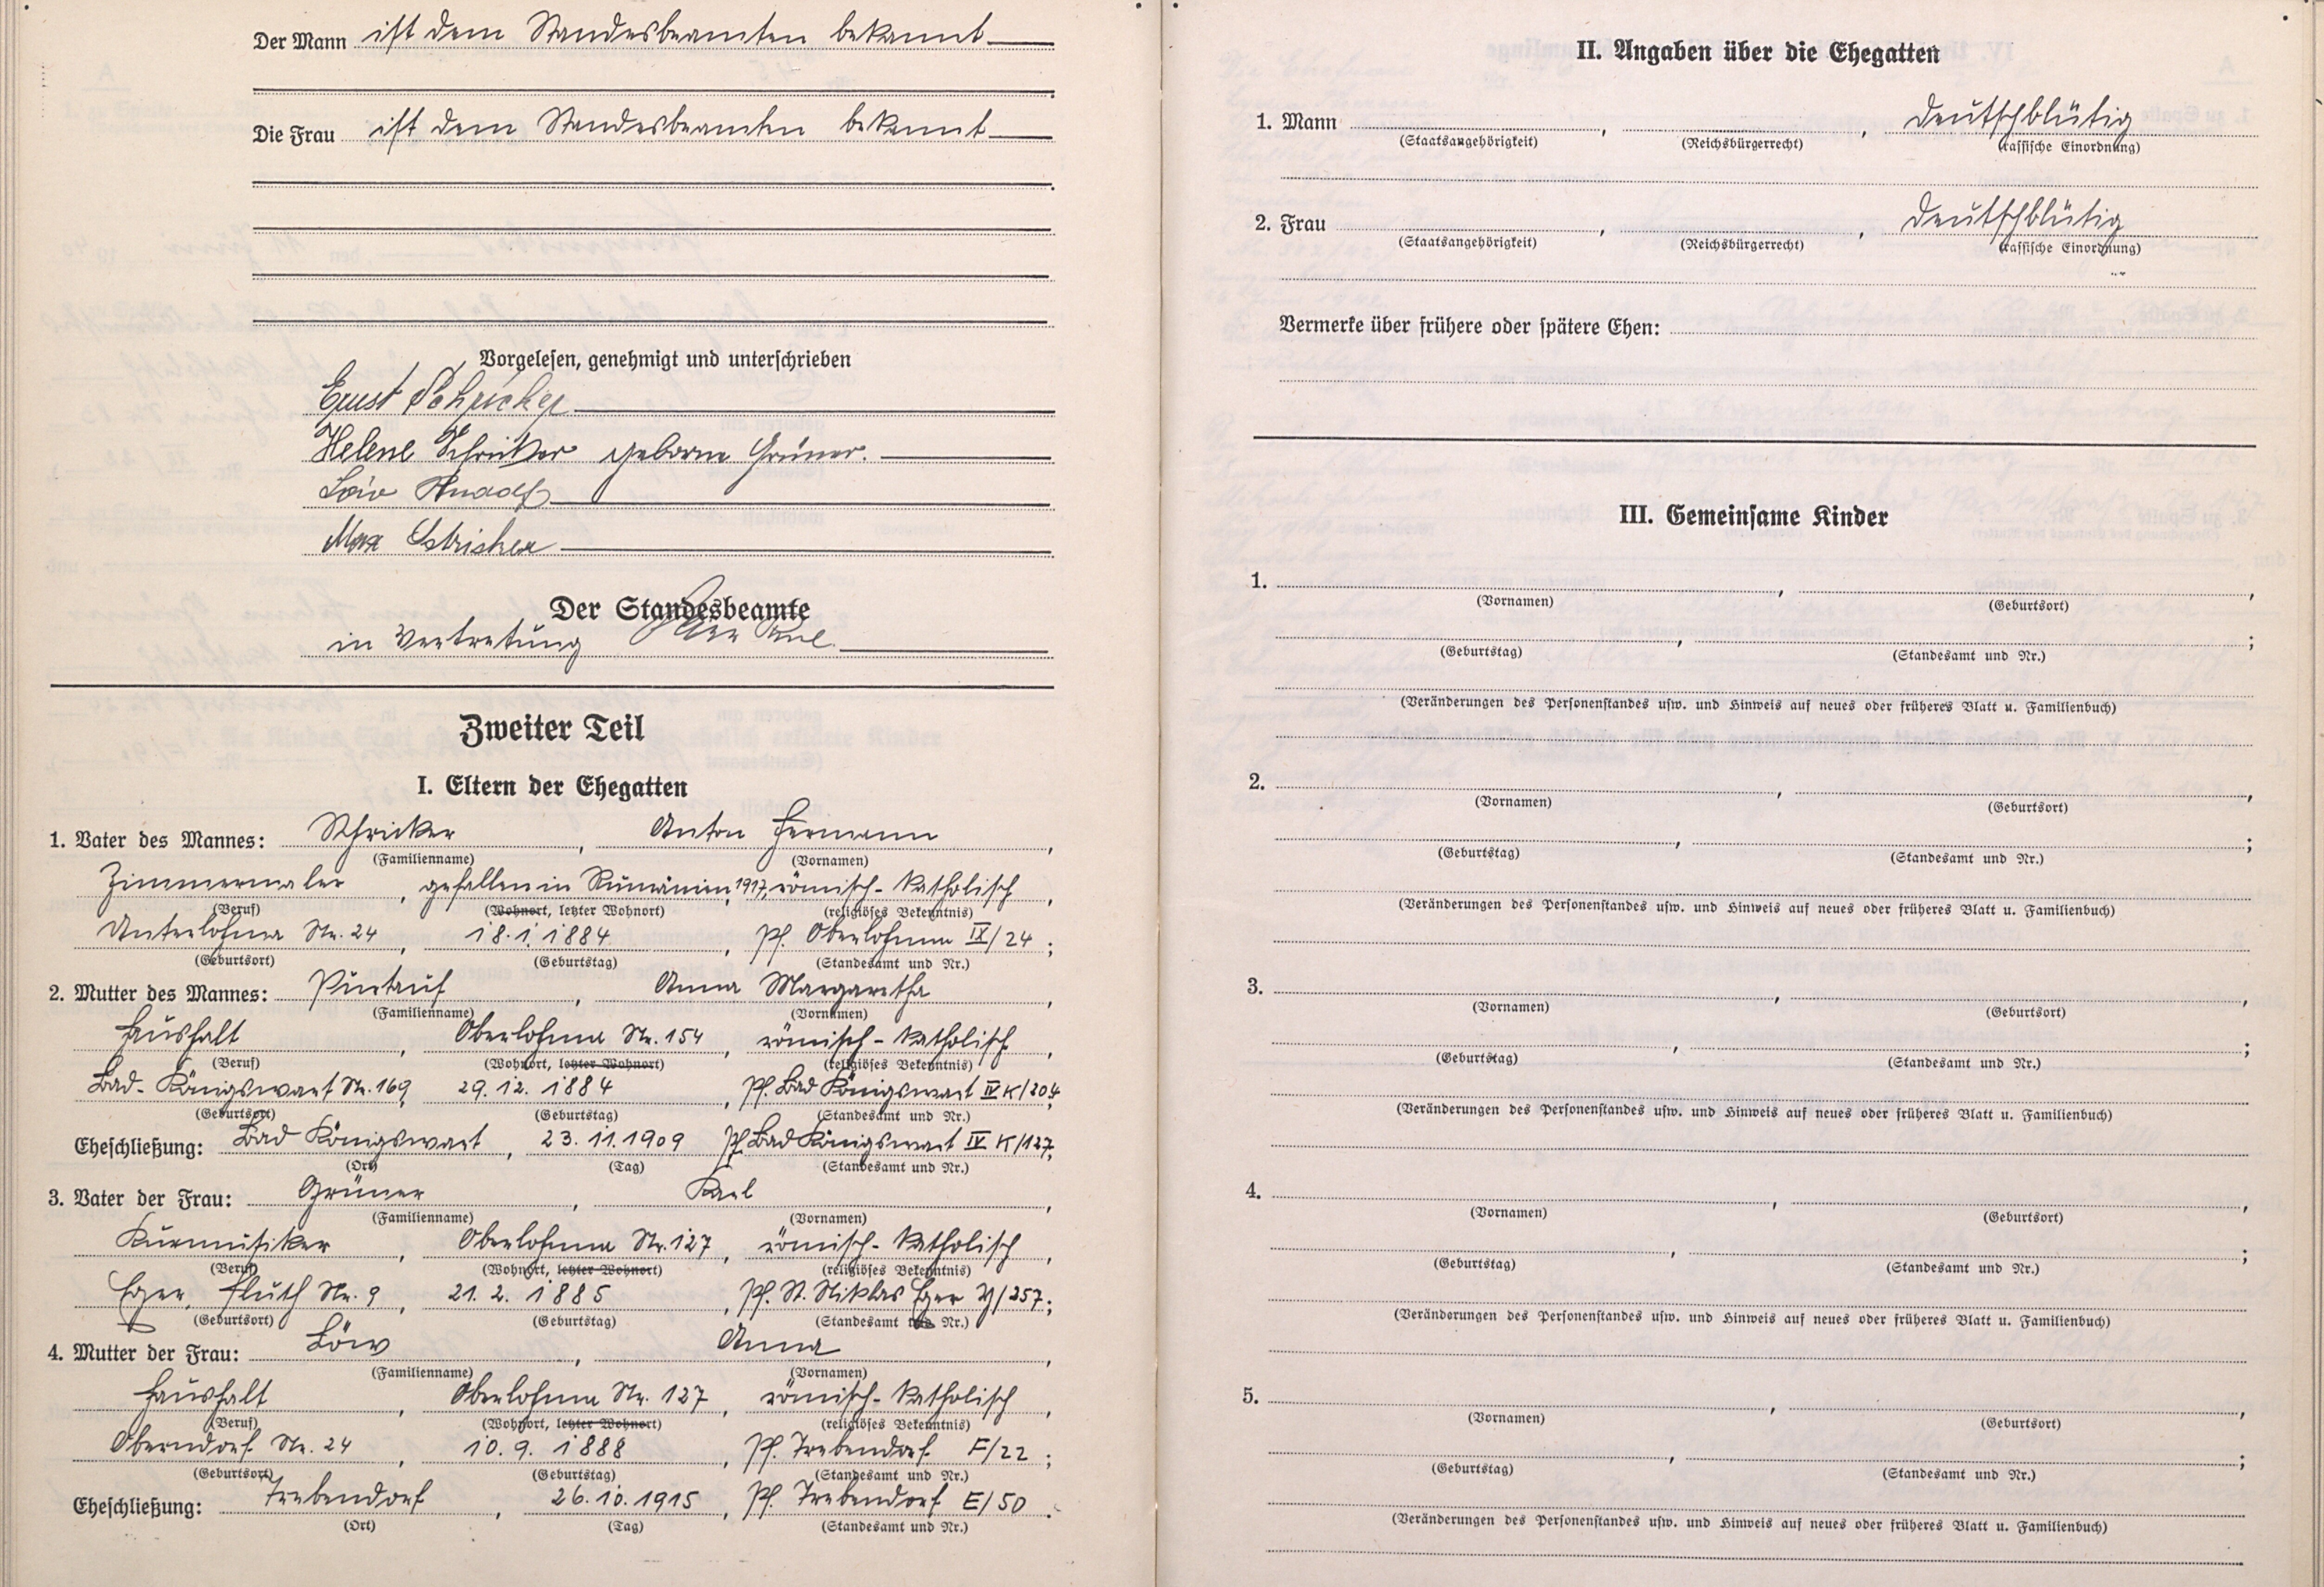 Der Mann ist dem Standesbeamten bekannt
Die Frau ist dem Standesbeamten bekannt
Vorgelesen, genehmigt und unterschrieben
Ernst Schricker
Helene Schricker geborne Grüner.
Max
Der Standesbeamte
in Vertretung
Zweiter Teil
I. Eltern der Ehegatten
1. Vater des Mannes: Schricker, Anton Hermann,
(Familienname) (Vornamen)
Zimmermaler, gefallen in Rumänien 1917, römisch-katholisch,
(Beruf) (Wohnort, letzter Wohnort) (religiöses Bekenntnis)
Unterlohma Nr. 24, 18.1.1884, Pf. Oberlohma IX/24;
(Geburtsort) (Geburtstag) (Standesamt und Nr.)
2. Mutter des Mannes: Purtauf, Anna Margaretha,
(Familienname) (Vornamen)
Haushalt, Oberlohma Nr. 154, römisch-katholisch,
(Beruf) (Wohnort, letzter Wohnort) (religiöses Bekenntnis)
Bad-Königswart Nr. 169, 29.12.1884, Pf. Bad Königswart IV K/204;
(Geburtsort) (Geburtstag) (Standesamt und Nr.)
Eheschließung: Bad Königswart, 23.11.1909 Pf. Bad Königswart IV K/127;
(Ort) (Tag) (Standesamt und Nr.)
3. Vater der Frau: Grüner, Karl,
(Familienname) (Vornamen)
Kurmusiker, Oberlohma Nr. 127, römisch-katholisch,
(Beruf) (Wohnort, letzter Wohnort) (religiöses Bekenntnis)
Eger, Fluth Nr. 9, 21.2.1885, Pf. St. Niklas Eger Y/257;
(Geburtsort) (Geburtstag) (Standesamt und Nr.)
4. Mutter der Frau: Löw, Anna,
(Familienname) (Vornamen)
Haushalt, Oberlohma Nr. 127, römisch-katholisch,
(Beruf) (Wohnort, letzter Wohnort) (religiöses Bekenntnis)
Oberndorf Nr. 24, 10.9.1888, Pf. Trebendorf F/22;
(Geburtsort) (Geburtstag) (Standesamt und Nr.)
Eheschließung: Trebendorf, 26.10.1915, Pf. Trebendorf E/50.
(Ort) (Tag) (Standesamt und Nr.)
II. Angaben über die Ehegatten
1. Mann , , deutschblütig
(Staatsangehörigkeit) (Reichsbürgerrecht) (rassische Einordnung)
2. Frau , , deutschblütig
(Staatsangehörigkeit) (Reichsbürgerrecht) (rassische Einordnung)
Vermerke über frühere oder spätere Ehen:
III. Gemeinsame Kinder
1. , ,
(Vornamen) (Geburtsort)
, ;
(Geburtstag) (Standesamt und Nr.)
(Veränderungen des Personenstandes usw. und Hinweis auf neues oder früheres Blatt u. Familienbuch)
2. , ,
(Vornamen) (Geburtsort)
, ;
(Geburtstag) (Standesamt und Nr.)
(Veränderungen des Personenstandes usw. und Hinweis auf neues oder früheres Blatt u. Familienbuch)
3. , ,
(Vornamen) (Geburtsort)
, ;
(Geburtstag) (Standesamt und Nr.)
(Veränderungen des Personenstandes usw. und Hinweis auf neues oder früheres Blatt u. Familienbuch)
4. , ,
(Vornamen) (Geburtsort)
, ;
(Geburtstag) (Standesamt und Nr.)
(Veränderungen des Personenstandes usw. und Hinweis auf neues oder früheres Blatt u. Familienbuch)
5. , ,
(Vornamen) (Geburtsort)
, ;
(Geburtstag) (Standesamt und Nr.)
(Veränderungen des Personenstandes usw. und Hinweis auf neues oder früheres Blatt u. Familienbuch)